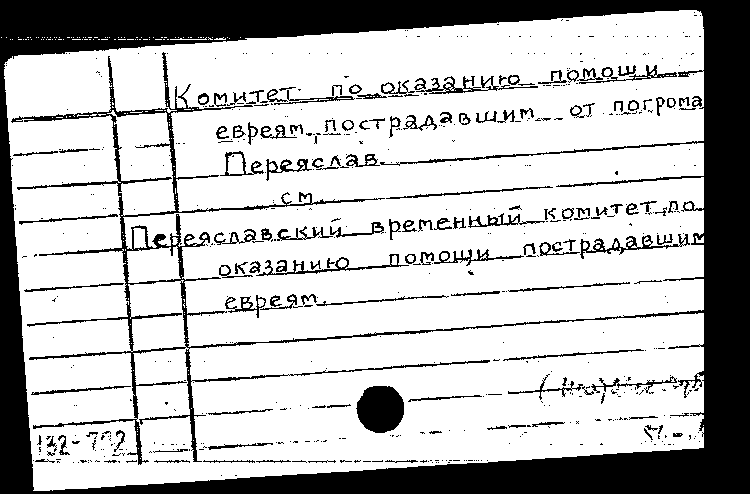 Комитет по оказанию помощи
евреям, пострадавшим от погрома
Переяслав.
см.
Переяславский временный комитет по
оказанию помощи пострадавшим
евреям.